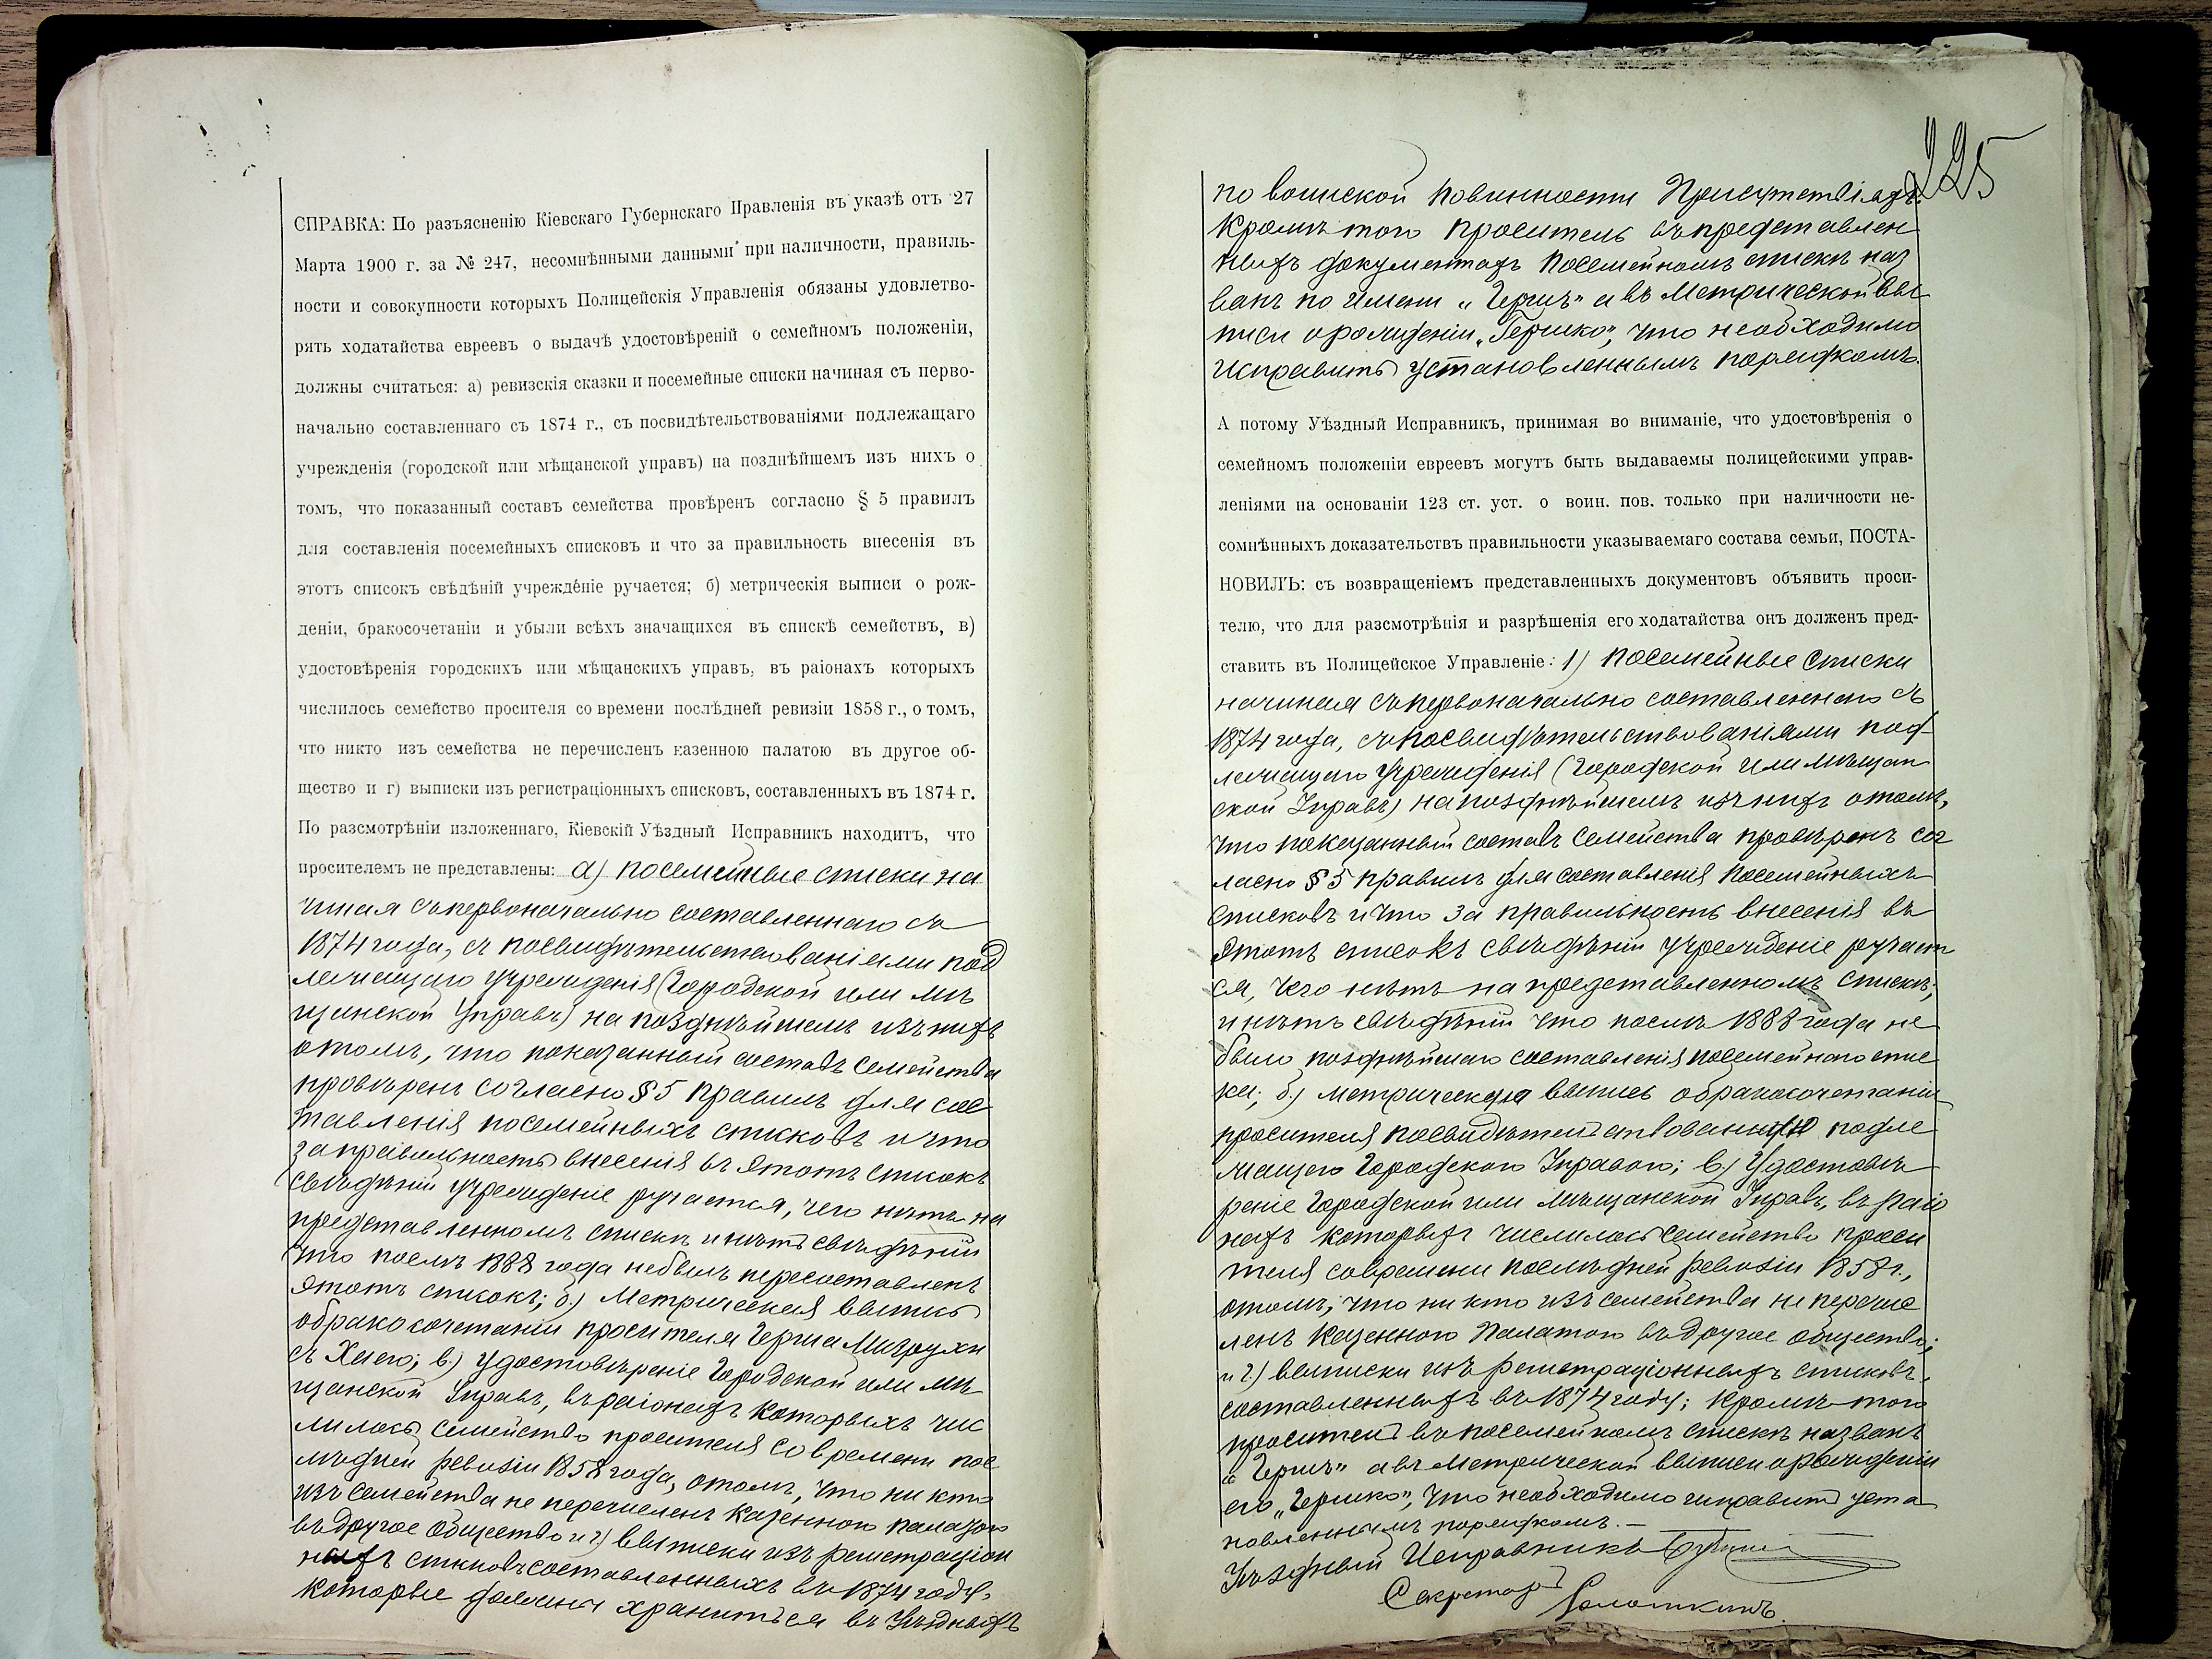 СПРАВКА: По разъясненію Кіевскаго Губернскаго Правленія въ указѣ отъ 27
Марта 1900 г. за № 247, несомнѣнными данными при наличности, правиль-
ности и совокупности которыхъ Полицейскія Управленія обязаны удовлетво-
рять ходатайства евреевъ о выдачѣ удостовѣреній о семейномъ положеніи,
должны считаться: а) ревизскія сказки и посемейные списки начиная съ перво-
начально составленнаго съ 1874 г., съ посвидѣтельствованіями подлежащаго
учрежденія (городской или мѣщанской управъ) на позднѣйшемъ изъ нихъ о
томъ, что показанный составъ семейства провѣренъ согласно § 5 правилъ
для составленія посемейныхъ списковъ и что за правильность внесенія въ
этотъ списокъ свѣдѣній учрежденіе ручается; б) метрическія выписи о рож-
деніи, бракосочетаніи и убыли всѣхъ значащихся въ спискѣ семействъ, в)
удостовѣренія городскихъ или мѣщанскихъ управъ, въ раіонахъ которыхъ
числилось семейство просителя со времени послѣдней ревизіи 1858 г., о томъ,
что никто изъ семейства не перечисленъ казенною палатою въ другое об-
щество и г) выписки изъ регистраціонныхъ списковъ, составленныхъ въ 1874 г.
По разсмотрѣніи изложеннаго, Кіевскій Уѣздный Исправникъ находитъ, что
просителемъ не представлены: а) посемейные списки на
чиная съ первоначально составленнаго съ
1874 года, съ посвидѣтельствованіями под
лежащаго учрежденія (Городской или мѣ
щанской Управъ) на позднѣйшемъ изъ нихъ
о томъ, что показанный составъ семейства
провѣренъ согласно § 5 правилъ для сос
тавленія посемейныхъ списковъ и что
за правильность внесенія въ этотъ списокъ
свѣдѣній учрежденіе ручается, чего нѣтъ на
представленномъ спискѣ и нѣтъ свѣдѣній
что послѣ 1888 года небылъ пересоставленъ
этотъ списокъ; б.) Метрическая выпись
о бракосочетаніи просителя Герша
съ Хаею; в.) удостовѣреніе Городской или мѣ
щанской Управъ, въ раіонахъ которыхъ чис
лилось семейство просителя со времени пос
лѣдней ревизіи 1858 года, о томъ, что ни кто
изъ семейства не перечисленъ казенною палатою
въ другое общество и г) выписки изъ регистраціон
ныхъ списковъ составленныхъ въ 1874 году,
которые должны храниться въ Уѣздныхъ
225
по воинской повинности Присутствіяхъ.
Кромѣ того проситель въ представлен
ныхъ документахъ посемейномъ спискѣ наз
ванъ по имени „Гершъ" а въ Метрической вы
писи о рожденіи „Гершко", что необходимо
исправить установленнымъ порядкомъ.
А потому Уѣздный Исправникъ, принимая во вниманіе, что удостовѣренія о
семейномъ положеніи евреевъ могутъ быть выдаваемы полицейскими управ-
леніями на основаніи 123 ст. уст. о воин. пов. только при наличности не-
сомнѣнныхъ доказательствъ правильности указываемаго состава семьи, ПОСТА-
НОВИЛЪ: съ возвращеніемъ представленныхъ документовъ объявить проси-
телю, что для разсмотрѣнія и разрѣшенія его ходатайства онъ долженъ пред-
ставить въ Полицейское Управленіе: 1) посемейные списки
начиная съ первоначально составленнаго съ
1874 года, съ посвидѣтельствованіями под-
лежащаго Учрежденія (Городской или мѣщан
ской Управъ) на позднѣйшемъ изъ нихъ о томъ,
что показанный составъ семейства провѣренъ сог
ласно § 5 правилъ для составленія посемейныхъ
списковъ и что за правильность внесенія въ
этотъ списокъ свѣдѣній учрежденіе ручает
ся, чего нѣтъ на представленномъ спискѣ;
и нѣтъ свѣдѣній что послѣ 1888 года не
было позднѣйшаго составленія посемейнаго спис
ка; б.) метрическую выпись о бракосочетаніи
просителя посвидѣтельствованную подле
жащею Городскою Управою; в.) Удостовѣ
реніе Городской или Мѣщанской Управъ, въ раіо
нахъ которыхъ числилось семейство проси
теля со времени послѣдней ревизіи 1858 г.,
о томъ, что ни кто изъ семейства не перечис
ленъ Казенною Палатою въ другое общество;
и г.) выписки изъ регистраціонныхъ списковъ,
составленныхъ въ 1874 году; Кромѣ того
проситель въ посемейномъ спискѣ названъ
„Гершъ" а въ Метрической выписи о рожденіи
его „Гершко", что необходимо исправить уста
новленнымъ порядкомъ.—
Уѣздный Исправникъ
Секретарь